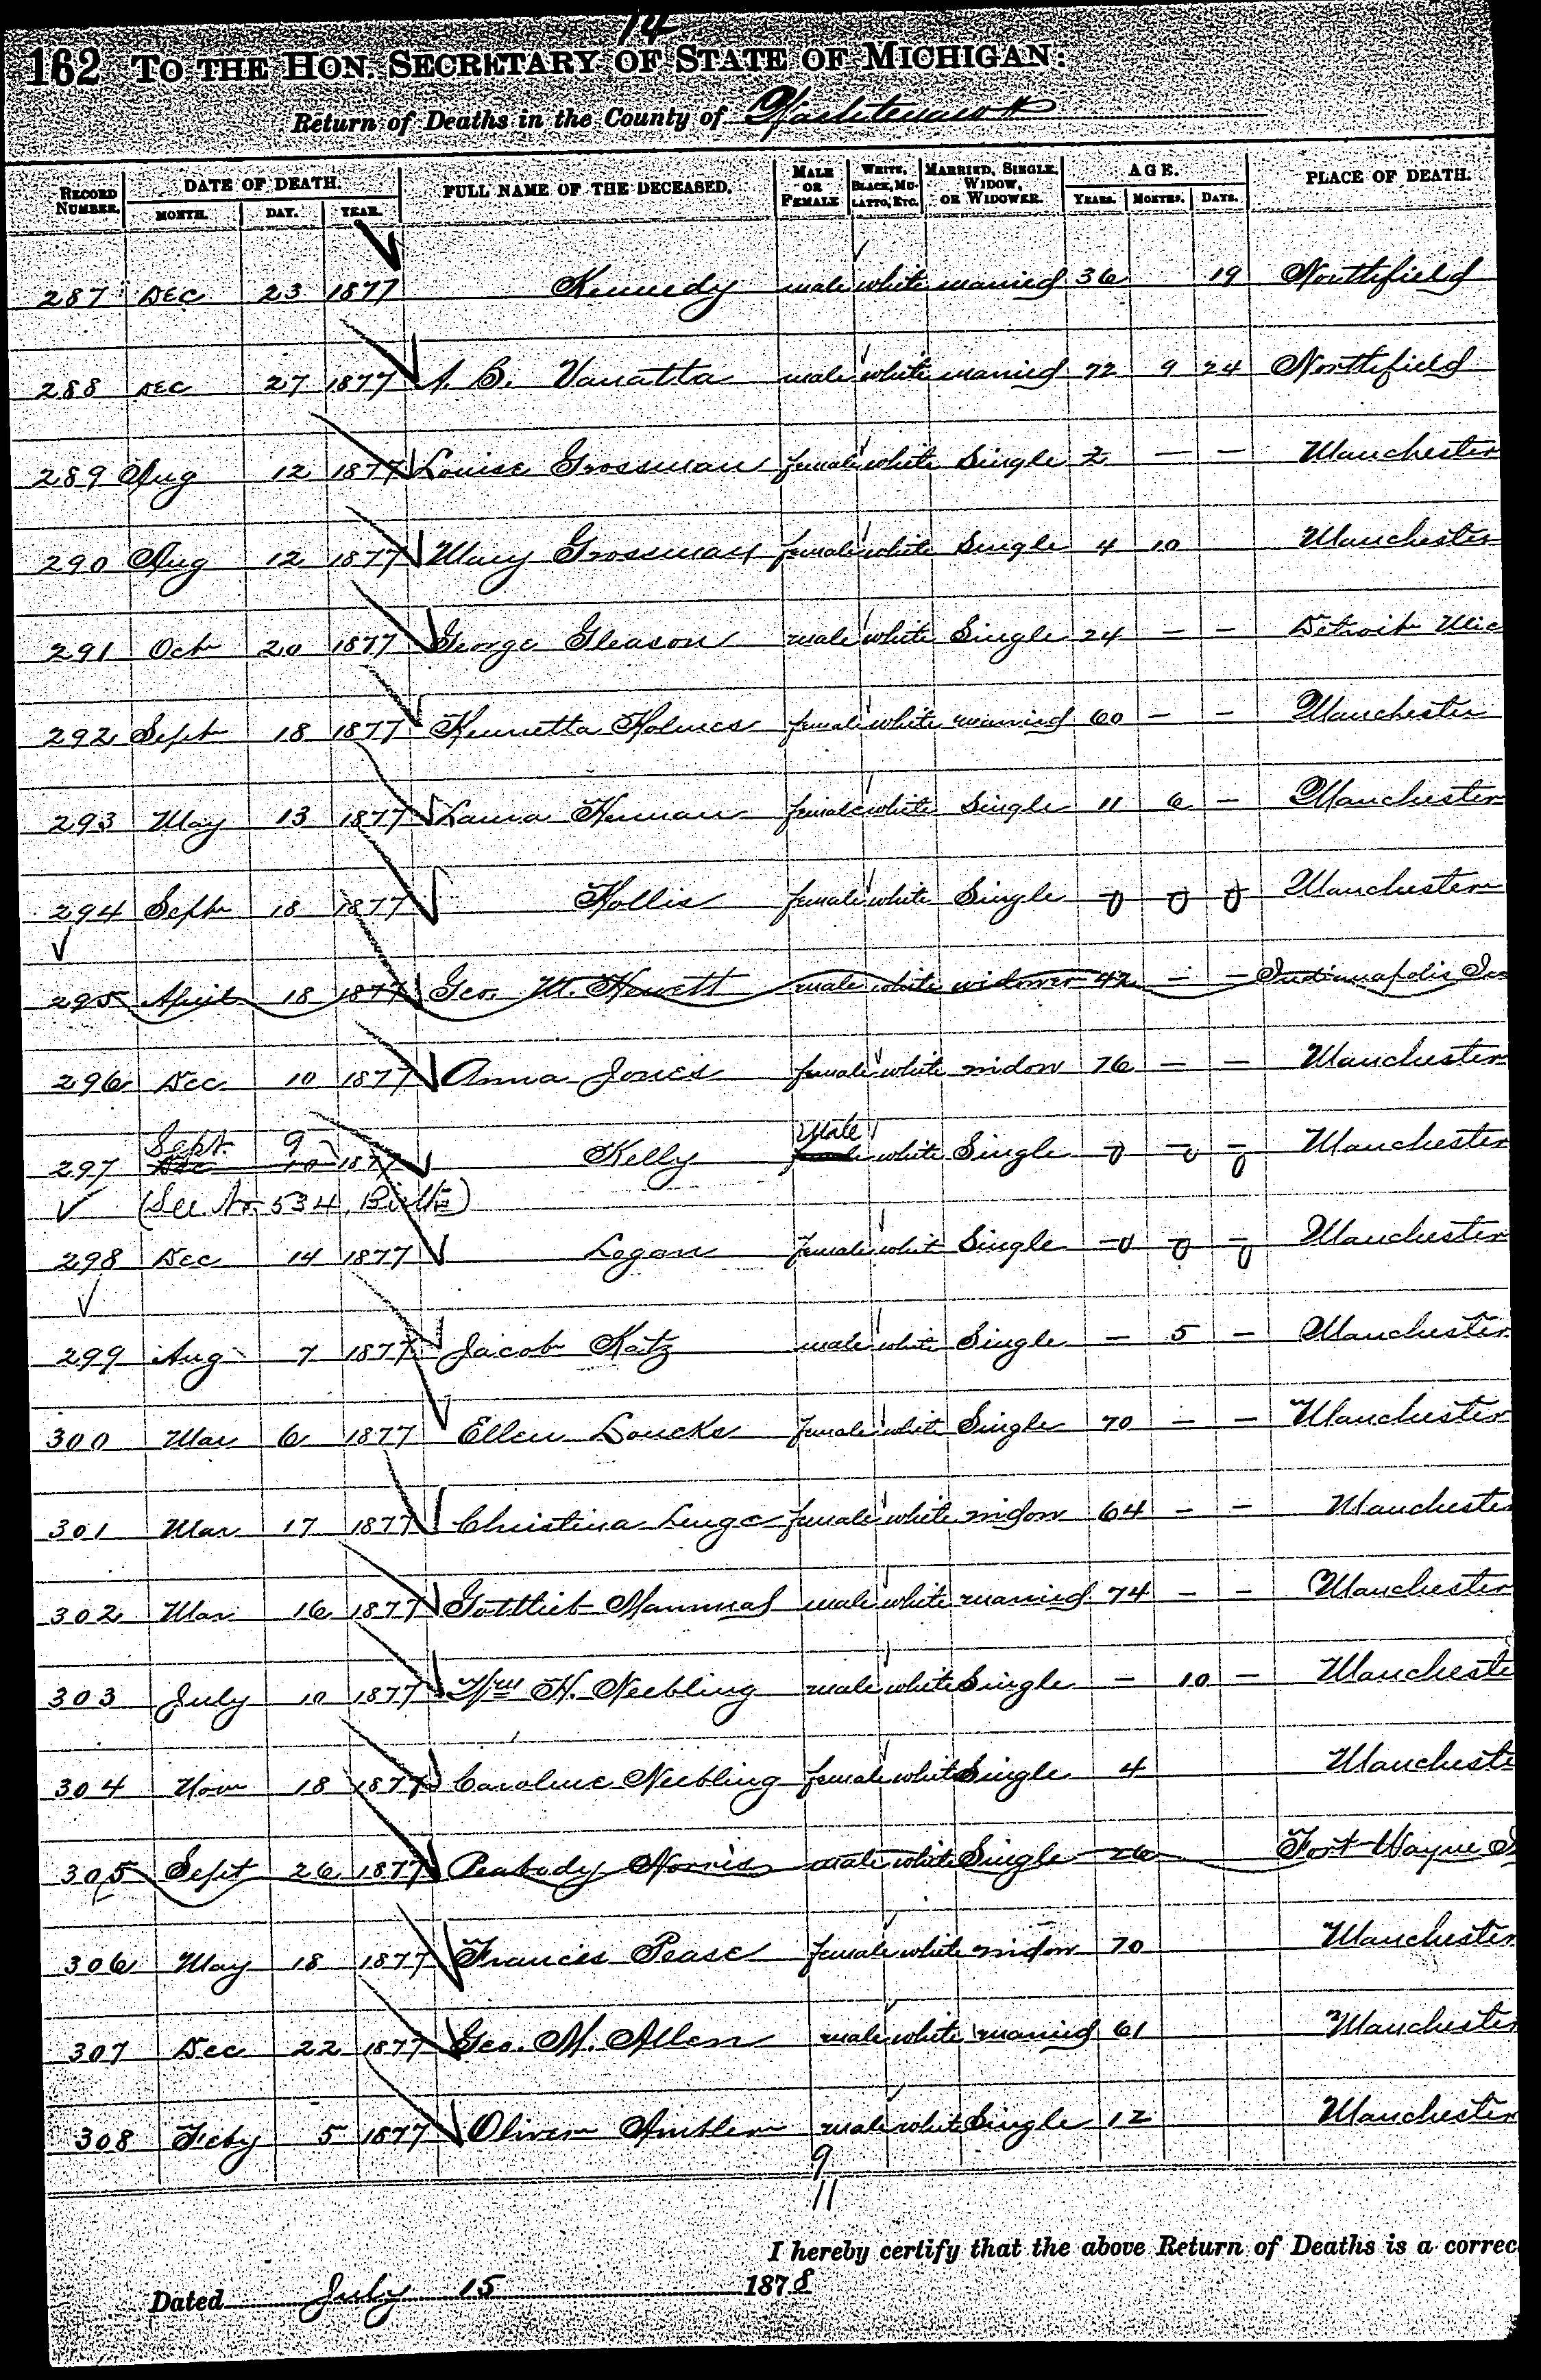 14
162 TO THE HON. SECRETARY OF STATE OF MICHIGAN:
Return of Deaths in the County of Washtenaw
RECORD NUMBER. DATE OF DEATH. MONTH. DAY. YEAR. FULL NAME OF THE DECEASED. MALE OR FEMALE WHITE, BLACK, MULATTO, ETC. MARRIED, SINGLE, WIDOW, OR WIDOWER. AGE. YEARS. MONTHS. DAYS. PLACE OF DEATH.
287 Dec 23 1877 Kennedy male white married 36 19 Northfield
288 Dec 27 1877 A. B. Vanatta male white married 72 9 24 Northfield
289 Aug 12 1877 Louise Grossman female white Single 2 — — Manchester
290 Aug 12 1877 Mary Grossman female white Single 4 10 Manchester
291 Oct 20 1877 George Gleason male white Single 24 — — Detroit Mic
292 Sept 18 1877 Henrietta Holmes female white married 60 — — Manchester
293 May 13 1877 Laura Human female white Single 11 6 — Manchester
294 Sept 18 1877 Hollis female white Single 0 0 0 Manchester
295 April 18 1877 Geo. M. Hewett male white widower 42 — — Indianapolis In
296 Dec 10 1877 Anna Jones female white widow 76 — — Manchester
Sept 9 Male
297 Dec 10 1877 Kelly female white Single 0 0 0 Manchester
(See No. 534, Births)
298 Dec 14 1877 Logan female whit Single 0 0 0 Manchester
299 Aug 7 1877 Jacob Katz male white Single — 5 — Manchester
300 Mar 6 1877 Ellen Loucks female whit Single 70 — — Manchester
301 Mar 17 1877 Christina Luge female white widow 64 — — Manchester
302 Mar 16 1877 Gottlieb male white married 74 — — Manchester
303 July 10 1877 Wm H. Neebling male white Single — 10 — Mancheste
304 Nov 18 1877 Caroline Neebling female white Single 4 Manchest
305 Sept 26 1877 Peabody Norris male white Single 26 Fort Wayne
306 May 18 1877 Frances Pease female white widow 70 Manchester
307 Dec 22 1877 Geo. M. Allen male white married 61 Manchester
308 Feby 5 1877 Oliver Ambler male white Single 12 Manchester
9
11
I hereby certify that the above Return of Deaths is a correc
Dated July 15 1878